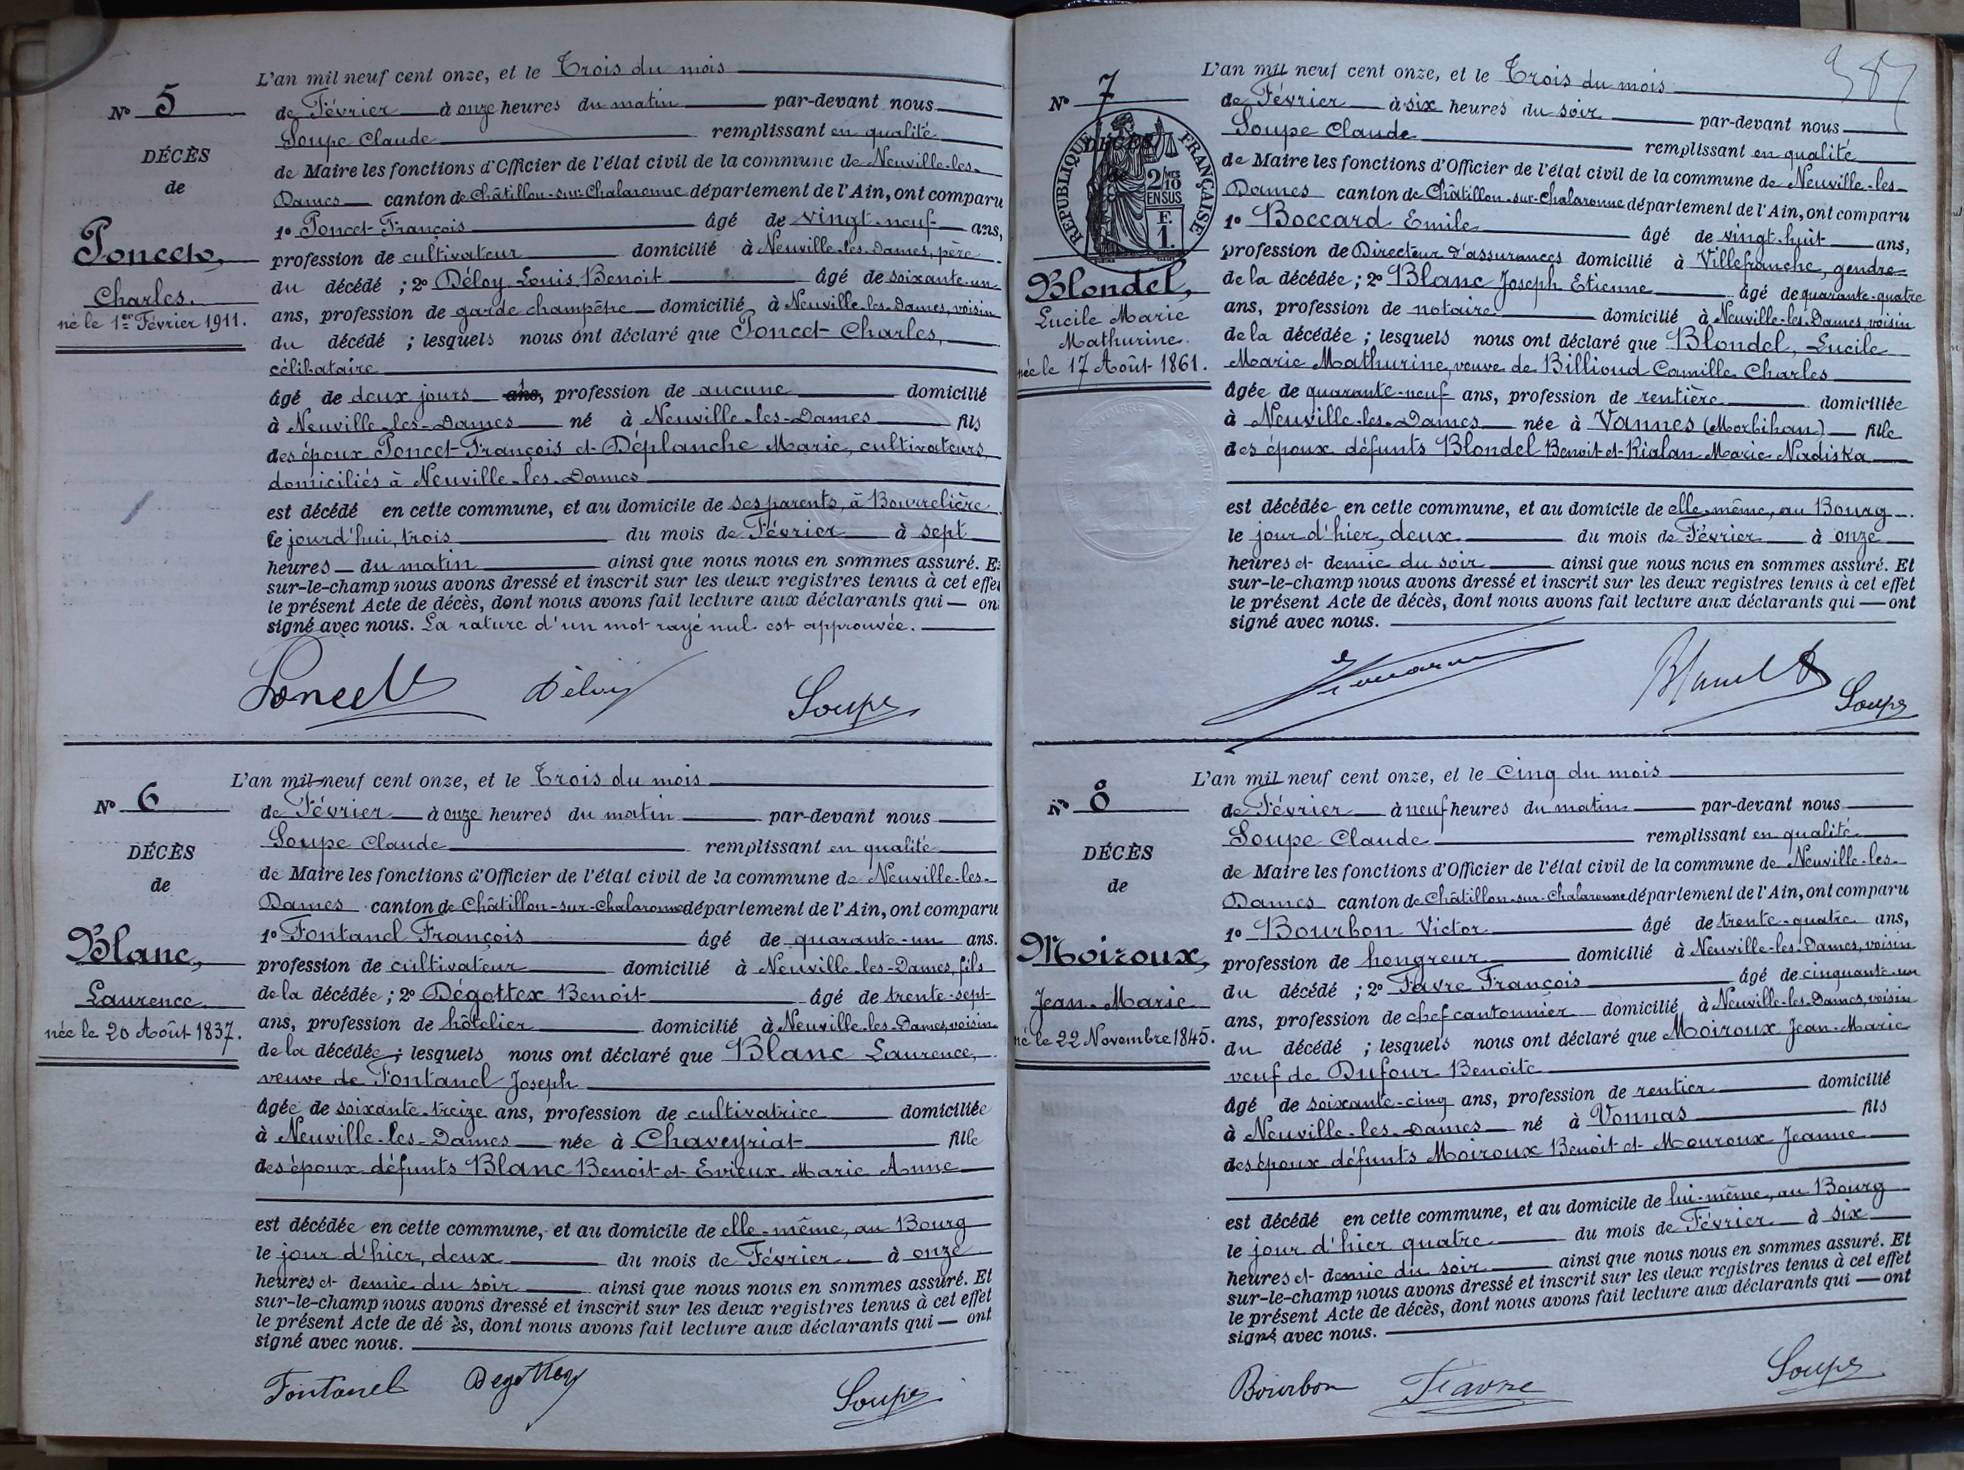 L'an mil neuf cent onze, et le Trois du mois
N° 5
de Février à onze heures du matin par-devant nous
Soupe Claude remplissant en qualité
DÉCÈS
de Maire les fonctions d'Officier de l'état civil de la commune de Neuville-les-
de
Dames canton de Châtillon-sur-Chalaronne département de l'Ain, ont comparu
1° Poncet François âgé de vingt-neuf ans,
Poncet,
profession de cultivateur domicilié à Neuville-les-Dames, père
Charles.
du décédé ; 2° Déloy Louis Benoit âgé de soixante-un
né le 1er Février 1911.
ans, profession de garde champêtre domicilié à Neuville-les-Dames, voisin
du décédé ; lesquels nous ont déclaré que Poncet Charles,
célibataire
âgé de deux jours ans, profession de aucune domicilié
à Neuville-les-Dames né à Neuville-les-Dames fils
des époux Poncet François et Déplanche Marie, cultivateurs,
domiciliés à Neuville-les-Dames
est décédé en cette commune, et au domicile de ses parents, à Bourrelière
le jourd'hui, trois du mois de Février à sept
heures du matin ainsi que nous nous en sommes assuré. Et
sur-le-champ nous avons dressé et inscrit sur les deux registres tenus à cet effet
le présent Acte de décès, dont nous avons fait lecture aux déclarants qui — ont
signé avec nous. La rature d'un mot rayé nul est approuvée.
Poncet Déloy Soupe
L'an mil neuf cent onze, et le Trois du mois
N° 6
de Février à onze heures du matin par-devant nous
Soupe Claude remplissant en qualité
DÉCÈS
de Maire les fonctions d'Officier de l'état civil de la commune de Neuville-les-
de
Dames canton de Châtillon-sur-Chalaronne département de l'Ain, ont comparu
1° Fontanel François âgé de quarante-un ans.
Blanc,
profession de cultivateur domicilié à Neuville-les-Dames, fils
Laurence.
de la décédée ; 2° Dégottex Benoit âgé de trente-sept
née le 20 Août 1837.
ans, profession de hôtelier domicilié à Neuville-les-Dames, voisin
de la décédée ; lesquels nous ont déclaré que Blanc Laurence,
veuve de Fontanel Joseph
âgée de soixante-treize ans, profession de cultivatrice domiciliée
à Neuville-les-Dames née à Chaveyriat fille
des époux défunts Blanc Benoit et Evieux Marie Anne
est décédée en cette commune, et au domicile de elle-même, au Bourg
le jour d'hier, deux du mois de Février à onze
heures et demie du soir ainsi que nous nous en sommes assuré. Et
sur-le-champ nous avons dressé et inscrit sur les deux registres tenus à cet effet
le présent Acte de dé ès, dont nous avons fait lecture aux déclarants qui — ont
signé avec nous.
Fontanel Degottex Soupe
387
L'an mil neuf cent onze, et le Trois du mois
N° 7
de Février à six heures du soir par-devant nous
Soupe Claude remplissant en qualité
RÉPUBLIQUE FRANÇAISE
DÉCÈS
2/10
EN SUS
F.
1.
de Maire les fonctions d'Officier de l'état civil de la commune de Neuville-les-
Dames canton de Châtillon-sur-Chalaronne département de l'Ain, ont comparu
1° Boccard Emile âgé de vingt-huit ans,
profession de Directeur d'assurances domicilié à Villefranche, gendre
Blondel,
de la décédée ; 2° Blanc Joseph Etienne âgé de quarante-quatre
Lucile Marie
ans, profession de notaire domicilié à Neuville-les-Dames, voisin
Mathurine.
de la décédée ; lesquels nous ont déclaré que Blondel, Lucile
née le 17 Août 1861.
Marie Mathurine, veuve de Billioud Camille Charles
âgée de quarante-neuf ans, profession de rentière domiciliée
à Neuville-les-Dames née à Vannes (Morbihan) fille
des époux défunts Blondel Benoit et Rialan Marie Nadiska
est décédée en cette commune, et au domicile de elle-même, au Bourg
le jour d'hier, deux du mois de Février à onze
heures et demie du soir ainsi que nous nous en sommes assuré. Et
sur-le-champ nous avons dressé et inscrit sur les deux registres tenus à cet effet
le présent Acte de décès, dont nous avons fait lecture aux déclarants qui — ont
signé avec nous.
Soupe
L'an mil neuf cent onze, et le cinq du mois
N° 8
de Février à neuf heures du matin par-devant nous
Soupe Claude remplissant en qualité
DÉCÈS
de Maire les fonctions d'Officier de l'état civil de la commune de Neuville-les-
de
Dames canton de Châtillon-sur-Chalaronne département de l'Ain, ont comparu
1° Bourbon Victor âgé de trente-quatre ans,
Moiroux,
profession de hongreur domicilié à Neuville-les-Dames, voisin
du décédé ; 2° Favre François âgé de cinquante-un
Jean-Marie
ans, profession de chef cantonnier domicilié à Neuville-les-Dames, voisin
né le 22 Novembre 1845.
du décédé ; lesquels nous ont déclaré que Moiroux Jean-Marie
veuf de Dufour Benoite
âgé de soixante-cinq ans, profession de rentier domicilié
à Neuville-les-Dames né à Vonnas fils
des époux défunts Moiroux Benoit et Mouroux Jeanne
est décédé en cette commune, et au domicile de lui-même, au Bourg
le jour d'hier quatre du mois de Février à six
heures et demie du soir ainsi que nous nous en sommes assuré. Et
sur-le-champ nous avons dressé et inscrit sur les deux registres tenus à cet effet
le présent Acte de décès, dont nous avons fait lecture aux déclarants qui — ont
signé avec nous.
Bourbon Favre Soupe